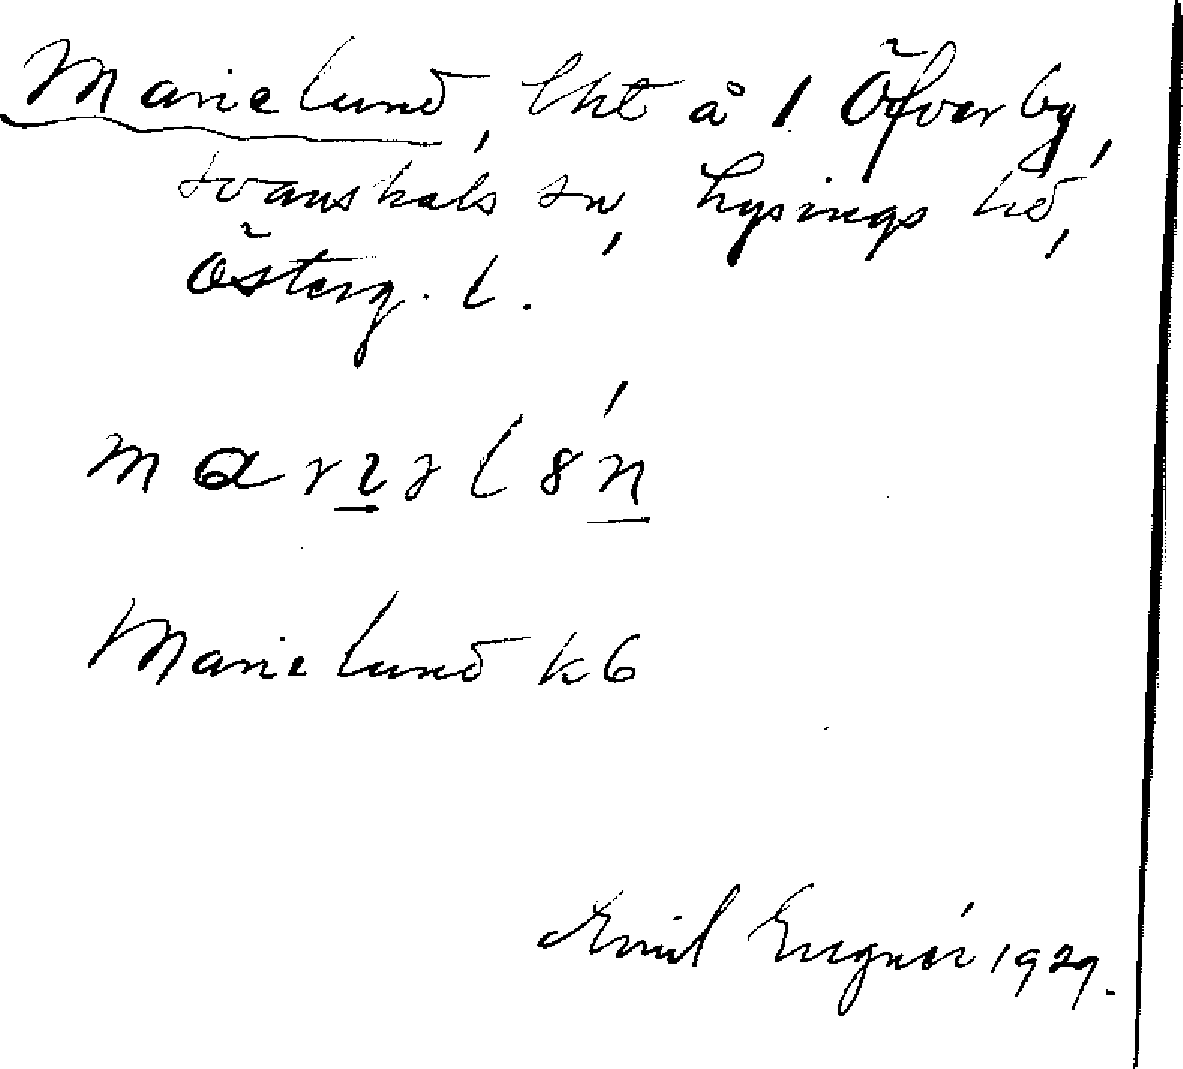 Marielund, lht å 1 Öfverby,
Svanshals sn, Lysings hd,
Österg. l.
Marielund k6
Emil Engnér 1929.